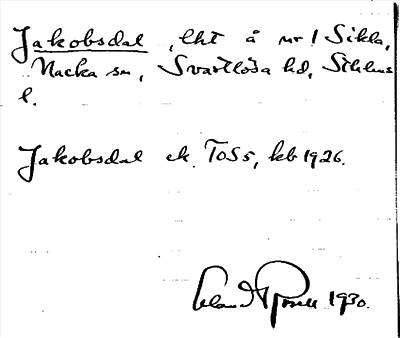 Jakobsdal, lht å nr 1 Sikla,
Nacka sn, Svartlösa hd, Sthlms
l.
Jakobsdal ek. ToS 5, kb 1926.
1930.